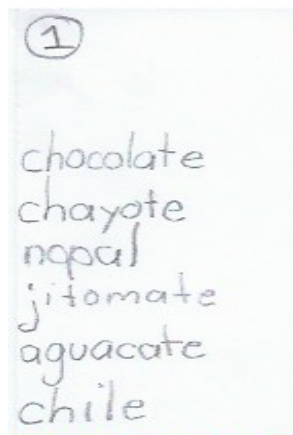 1
chocolate
chayote
nopal
jitomate
aguacate
chile